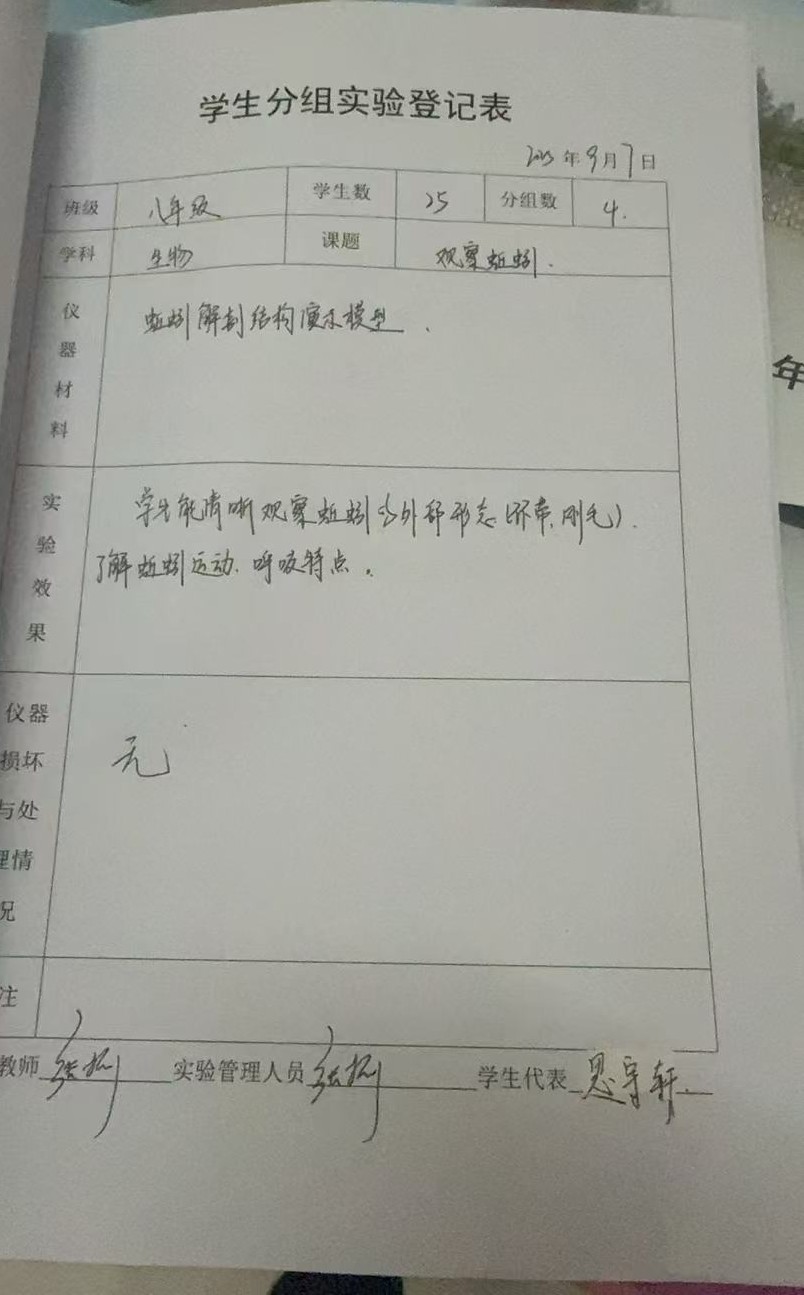 学生分组实验登记表
2023年9月7日
班级 八年级 学生数 25 分组数 4.
学科 生物 课题 观察蚯蚓.
仪器材料 蚯蚓解剖结构演示模型.
实验效果 学生能清晰观察蚯蚓的外部形态(环带,刚毛).
了解蚯蚓运动.呼吸特点.
仪器
损坏
与处
理情
况
无
注
教师 实验管理人员 学生代表
年